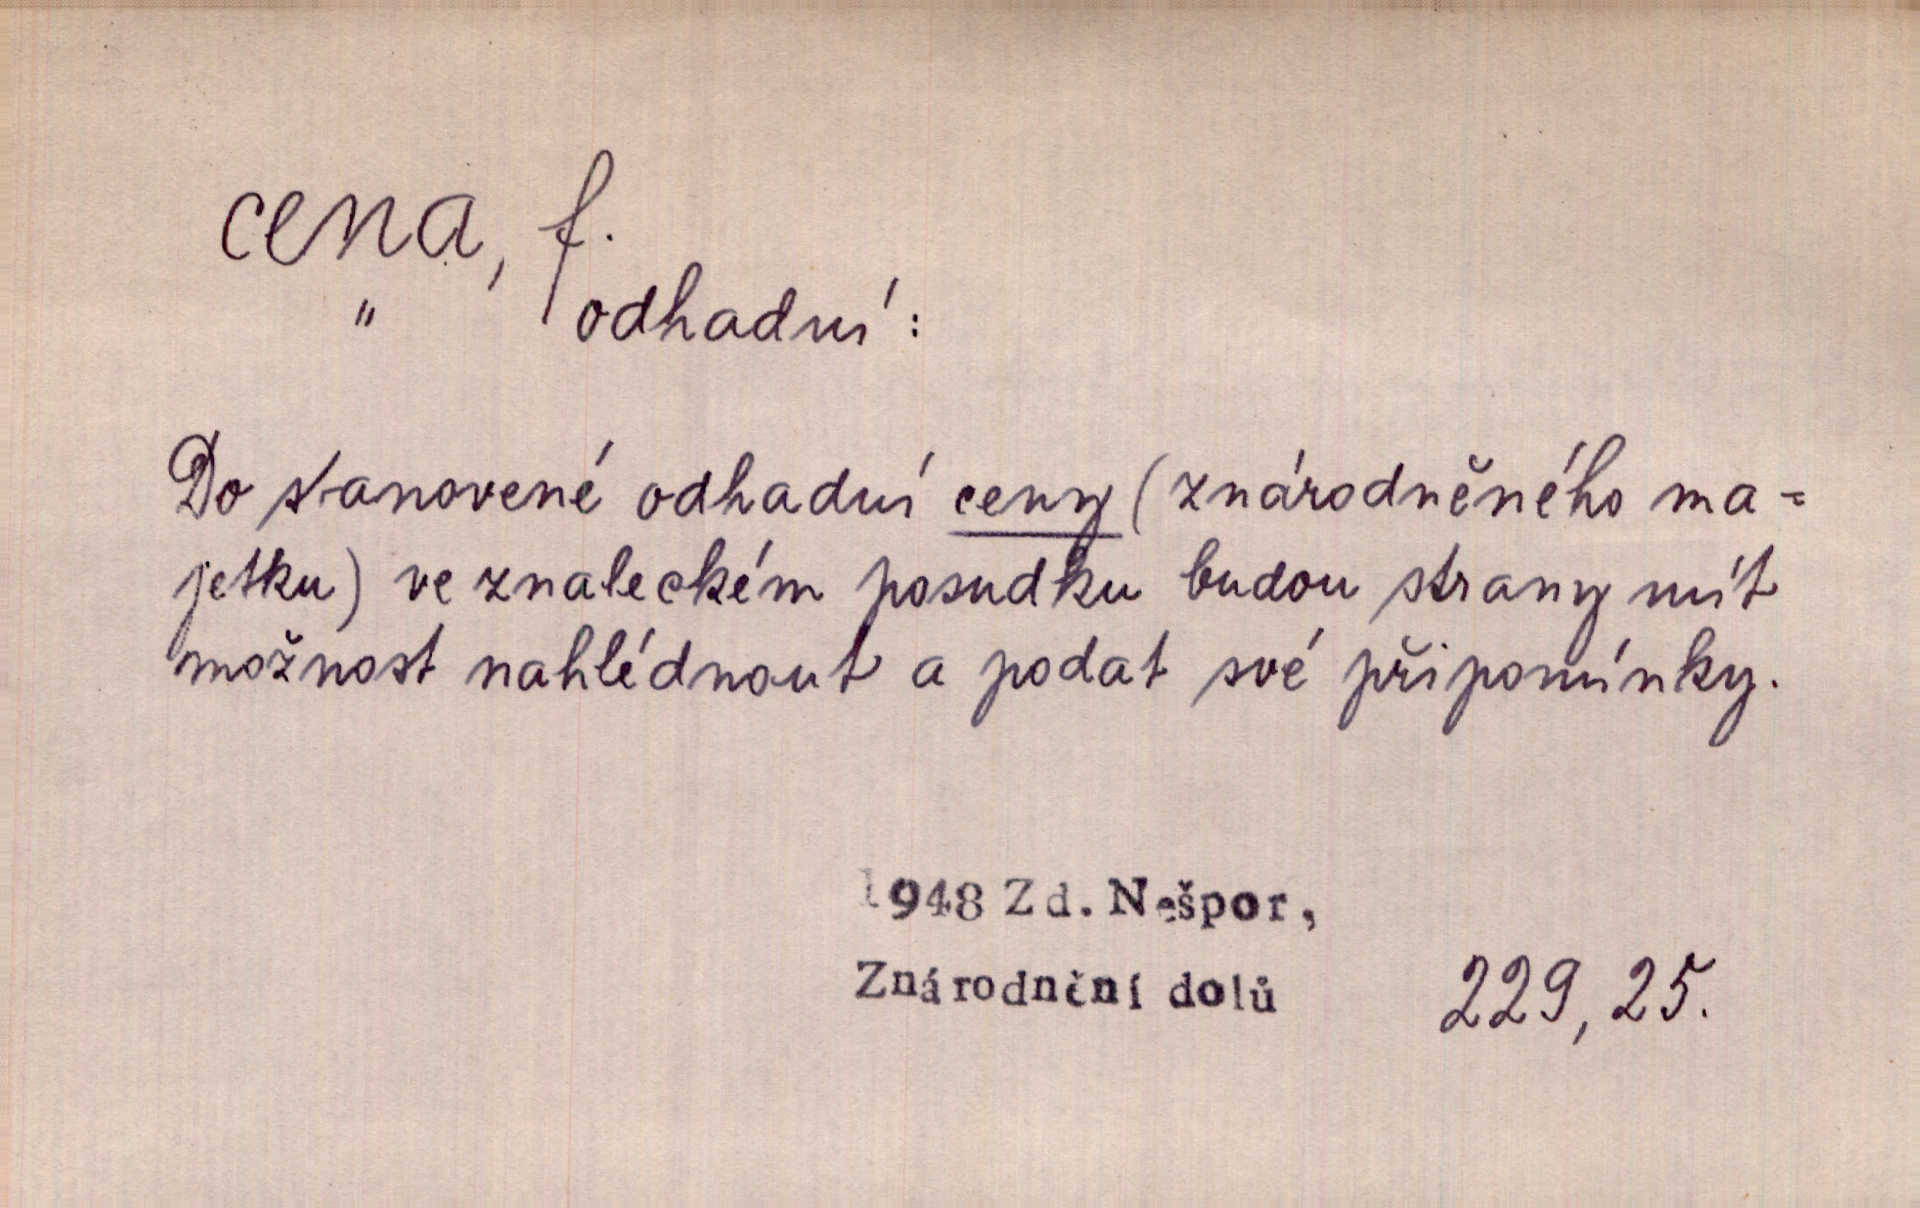 cena, f.
" odhadní:
Do stanovené odhadní ceny (znárodněného ma=
jetku) ve znaleckém posudku budou strany mít
možnost nahlédnout a podat své připomínky.
1948 Zd. Nešpor,
Znárodnění dolů 229, 25.